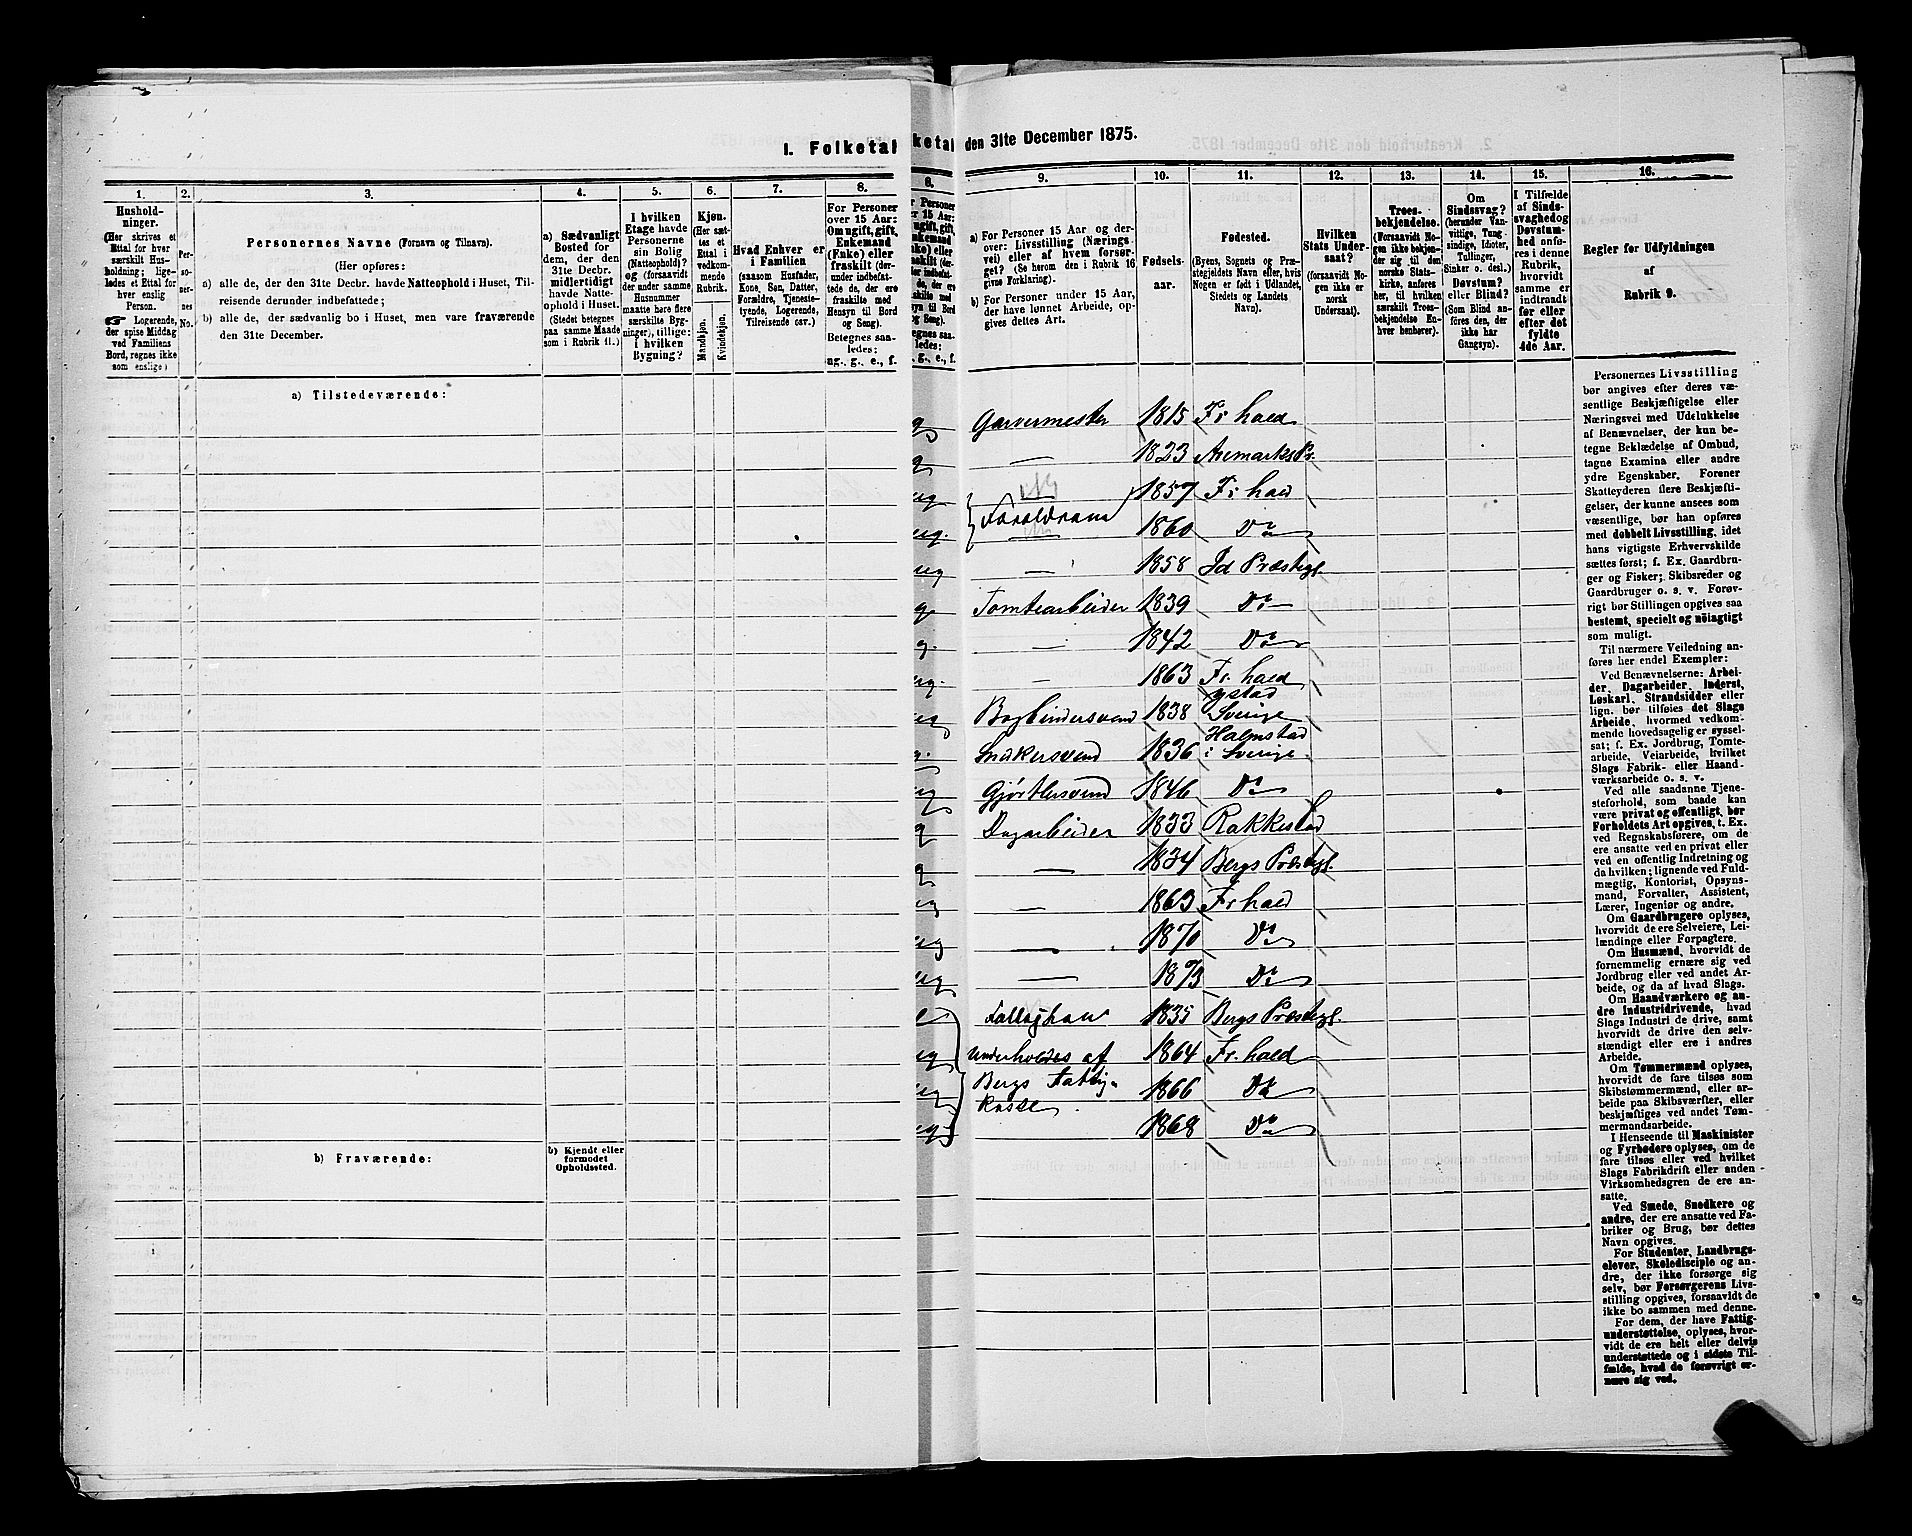 1. Folketal
ketal den 31te December 1875.
1.
Hushold-
ninger.
(Her skrives et
Ettal for hver
særskilt Hus-
holdning; lige-
ledes et Ettal for
hver enslig
Person.
☞ Logerende,
der spise Middag
ved Familiens
Bord, regnes ikke
som enslige)
2.
Per-
so-
ner-
nes
No.
3.
Personernes Navne (Fornavn og Tilnavn).
(Her opføres:
a) alle de, der den 31te Decbr. havde Natteophold i Huset, Til-
reisende derunder indbefattede;
b) alle de, der sædvanlig bo i Huset, men vare fraværende
den 31te December.
4.
a) Sædvanligt
Bosted for
dem, der den
31te Decbr.
midlertidigt
havde Natte-
ophold i Huset.
(Stedet betegnes
paa samme Maade
som i Rubrik 11.)
5.
I hvilken
Etage havde
Personerne
sin Bolig
(Natteophold)?
og (forsaavidt
der under samme
Husnummer
maatte høre flere
særskilte Byg-
ninger), tillige:
i hvilken
Bygning?
6.
Kjøn.
(Her sæt-
tes et
Ettal i
vedkom-
mende
Rubrik.
Mandkjøn.
Kvindekjøn.
7.
Hvad Enhver er
i Familien
(saasom Husfader,
Kone, Søn, Datter,
Forældre, Tjeneste-
tyende, Logerende,
Tilreisende osv.)
8.
For Personer
over 15 Aar:
Om ugift, gift,
Enkemand
(Enke) eller
fraskilt (der-
under indbefat-
tede de, der ere
fraskilte med
Hensyn til Bord
og Seng).
Betegnes saa-
ledes:
ug., g., e., f.
9.
a) For Personer 15 Aar og der-
over: Livsstilling (Nærings
vei) eller af hvem forsør-
get? (Se herom den i Rubrik 16
opgivne Forklaring).
b) For Personer under 15 Aar,
der have lønnet Arbeide, op-
gives dettes Art.
10.
Fødsels-
aar.
11.
Fødested.
(Byens, Sognets og Præ-
stegjeldets Navn efter, hvis
Nogen er født i Udlandet,
Stedets og Landets
Navn).
12.
Hvilken
Stats Under-
saat?
(forsaavidt No-
gen ikke er
norsk
Undersaat).
13.
Troes-
bekjendelse.
(Forsaavidt No-
gen ikke bekjen-
der sig til den
norske Stats-
kirke, anføres
her, til hvilken
særskilt Troes-
bekjendelse En-
hver henhører).
14.
Om
Sindssvag?
(herunder Van-
vittige, Tung
sindige, Idioter,
Tullinger,
Sinker o. desl.)
Døvstum?
eller Blind?
(Som Blind an-
føres den, der
ikke har
Gangsyn).
15.
I Tilfælde
af Sinds-
svaghed og
Døvstum-
hed anfø-
res i denne
Rubrik,
hvorvidt
samme er
indtraadt
før eller
efter det
fyldte
4de Aar.
16.
Regler for Udfyldningen
af
Rubrik 9.
a) Tilstedeværende:
g Garvermester 1815 Fr hald
g — 1823 Aremarks Pr.
ug — 1857 Fr hald
Forældrene
ug. — 1860 Do
ug — 1858 Id Præstegl.
g. Tomtearbeider 1839 Do
g. — 1842 Do
ug. — 1863 Fr. hald
ug Bogbindersvend 1838 Ystad Sverige
g. Snækersvend 1836 Halmstad i Sverige
ug Gjørtlersvend 1846 Do
g Dagarbeider 1833 Rakkestad
g — 1834 Bergs Præstegl.
ug — 1863 Fr hald
ug — 1870 Do
ug — 1873 Do
e 1835 Bergs Præstegl.
ug Underholdes af 1864 Fr. hald
ug Bergs Fattig- 1866 Do
Kasse
ug 1868 Do
b) Fraværende:
b) Kjendt eller
formodet
Opholdssted.
Personernes Livsstilling
bør angives efter deres væ-
sentlige Beskjæftigelse eller
Næringsvei med Udelukkelse
af Benævnelser, der kun be-
tegne Beklædelse af Ombud,
tagne Examina eller andre
ydre Egenskaber. Forener
Skatteyderen flere Beskjæfti-
gelser, der kunne ansees som
væsentlige, bør han opføres
med dobbelt Livsstilling, idet
hans vigtigste Erhvervskilde
sættes først; f. Ex. Gaardbru-
ger og Fisker; Skibsreder og
Gaardbruger o. s. v. Forøv-
rigt bør Stillingen opgives saa
bestemt, specielt og nöiagtigt
som muligt.
Til nærmere Veiledning an-
føres her endel Exempler:
Ved Benævnelserne: Arbei-
der, Dagarbeider, Inderst,
Løskarl, Strandsidder eller
lign. bør tilføies det Slags
Arbeide, hvormed vedkom-
mende hovedsagelig er syssel-
sat; f. Ex. Jordbrug, Tomte-
arbeide, Veiarbeide, hvilket
Slags Fabrik- eller Haand-
værksarbeide o. s. v.
Ved alle saadanne Tjene-
steforhold, som baade kan
være privat og offentligt, bør
Forholdets Art opgives, t. Ex.
ved Regnskabsførere, om de
ere ansatte ved en privat eller
ved en offentlig Indretning og
da hvilken; lignende ved Fuld-
mægtig, Kontorist, Opsyns-
mand, Forvalter, Assistent,
Lærer, Ingeniør og andre.
Om Gaardbrugere oplyses,
hvorvidt de ere Selveiere, Lei-
lændinge eller Forpagtere.
Om Husmænd, hvorvidt de
fornemmelig ernære sig ved
Jordbrug eller ved andet Ar-
beide, og da af hvad Slags.
Om Haandværkere og an-
dre Industridrivende, hvad
Slags Industri de drive, samt
hvorvidt de drive den selv-
stændigt eller ere i andres
Arbeide.
Om Tømmermænd oplyses,
hvorvidt de fare tilsøs som
Skibstømmermænd, eller ar-
beide paa Skibsværfter, eller
beskjæftiges ved andet Tøm-
mermandsarbeide.
I Henseende til Maskinister
og Fyrbødere oplyses, om de
fare tilsøs eller ved hvilket
Slags Fabrikdrift eller anden
Virksomhedsgren de ere an-
satte.
Ved Smede, Snedkere og
andre, der ere ansatte ved Fa-
briker og Brug, bør dettes
Navn opgives.
For Studenter, Landbrugs-
elever, Skoledisciple og an-
dre, der ikke forsørge sig
selv, bør Forsørgerens Livs-
stilling opgives, forsaavidt de
ikke bo sammen med denne.
For dem, der have Fattig-
understøttelse, oplyses, hvor-
vidt de ere helt eller delvis
understøttede og i sidste Til-
fælde, hvad de forøvrigt er-
nære sig ved.